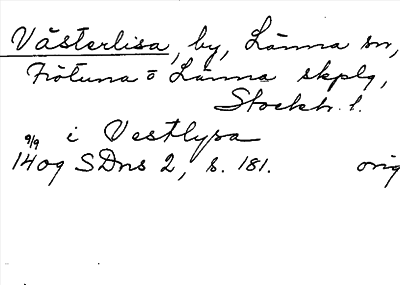 Västerlisa, by, Länna sn,
Frötuna o Länna skplg,
Stockh. l.
9/9 i Vestlysa
1409 SDns 2, s. 181. orig